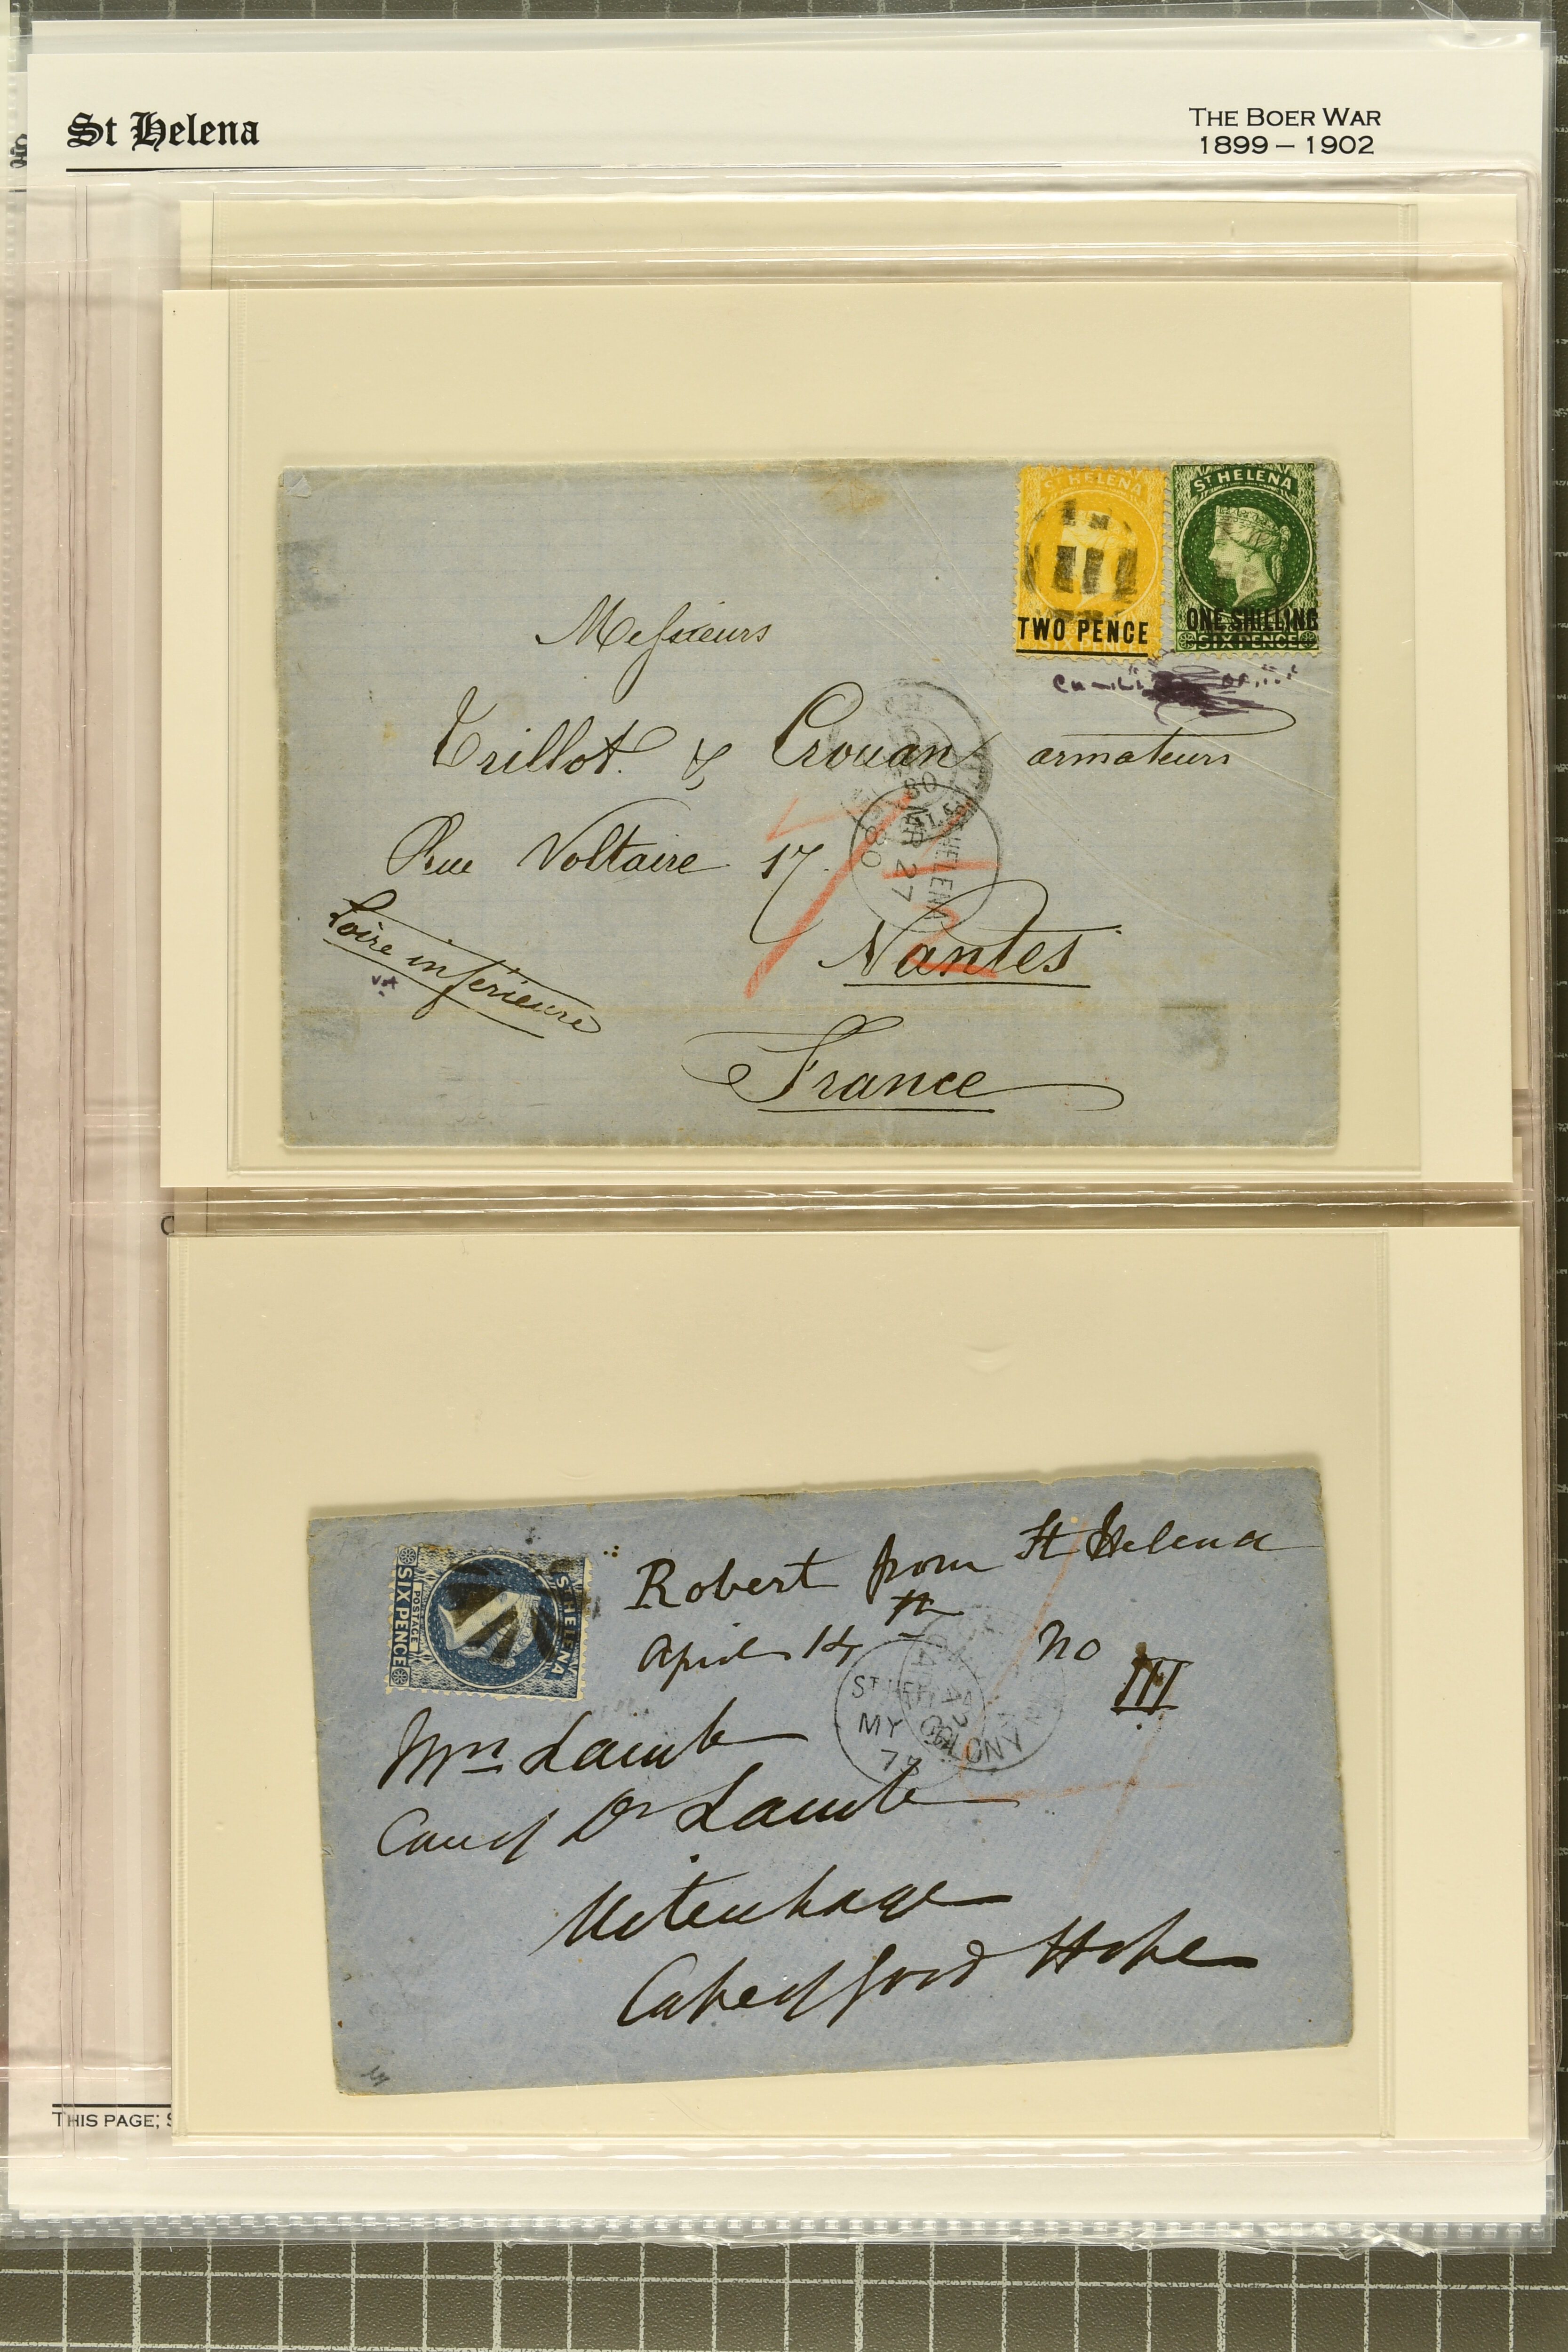 St Helena
THE BOER WAR
1899 – 1902
ST HELENA
TWO PENCE
SIX PENCE
ST HELENA
ONE SHILLING
SIX PENCE
Messieurs
Trillot & Crouan armateurs
Rue Voltaire 17.
Loire inférieure
Nantes
France
HELENA
27
80
ST HELENA
POSTAGE
SIX PENCE
Robert from St Helena
April 14th no III
Mrs Lamb
Care of Dr Lamb
Uitenhage
Cape of Good Hope
ST HELENA
MY
COLONY
THIS PAGE;